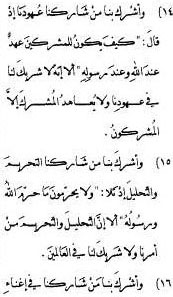 (١٤) وأشركَ بنا من شاركنا عهودنا إذ
قالَ: "كيفَ يكونُ للمشركينَ عهدٌ
عندَ اللهِ وعندَ رسولِهِ" ألا إنّهُ لا شريكَ لنا
في عهودنا ولا يعاهدُ المشركَ إلاَّ
المشركونَ.
(١٥) وأشركَ بنا من شاركنا التحريمَ
والتحليلَ إذ تلا: "ولا يحرّمونَ ما حرّمَ اللهُ
ورسولُهُ" ألا إنّ التحليلَ والتحريمَ من
أمرنا ولا شريكَ لنا في العالمينَ.
(١٦) وأشركَ بنا مَنْ شاركنا في إغناءِ